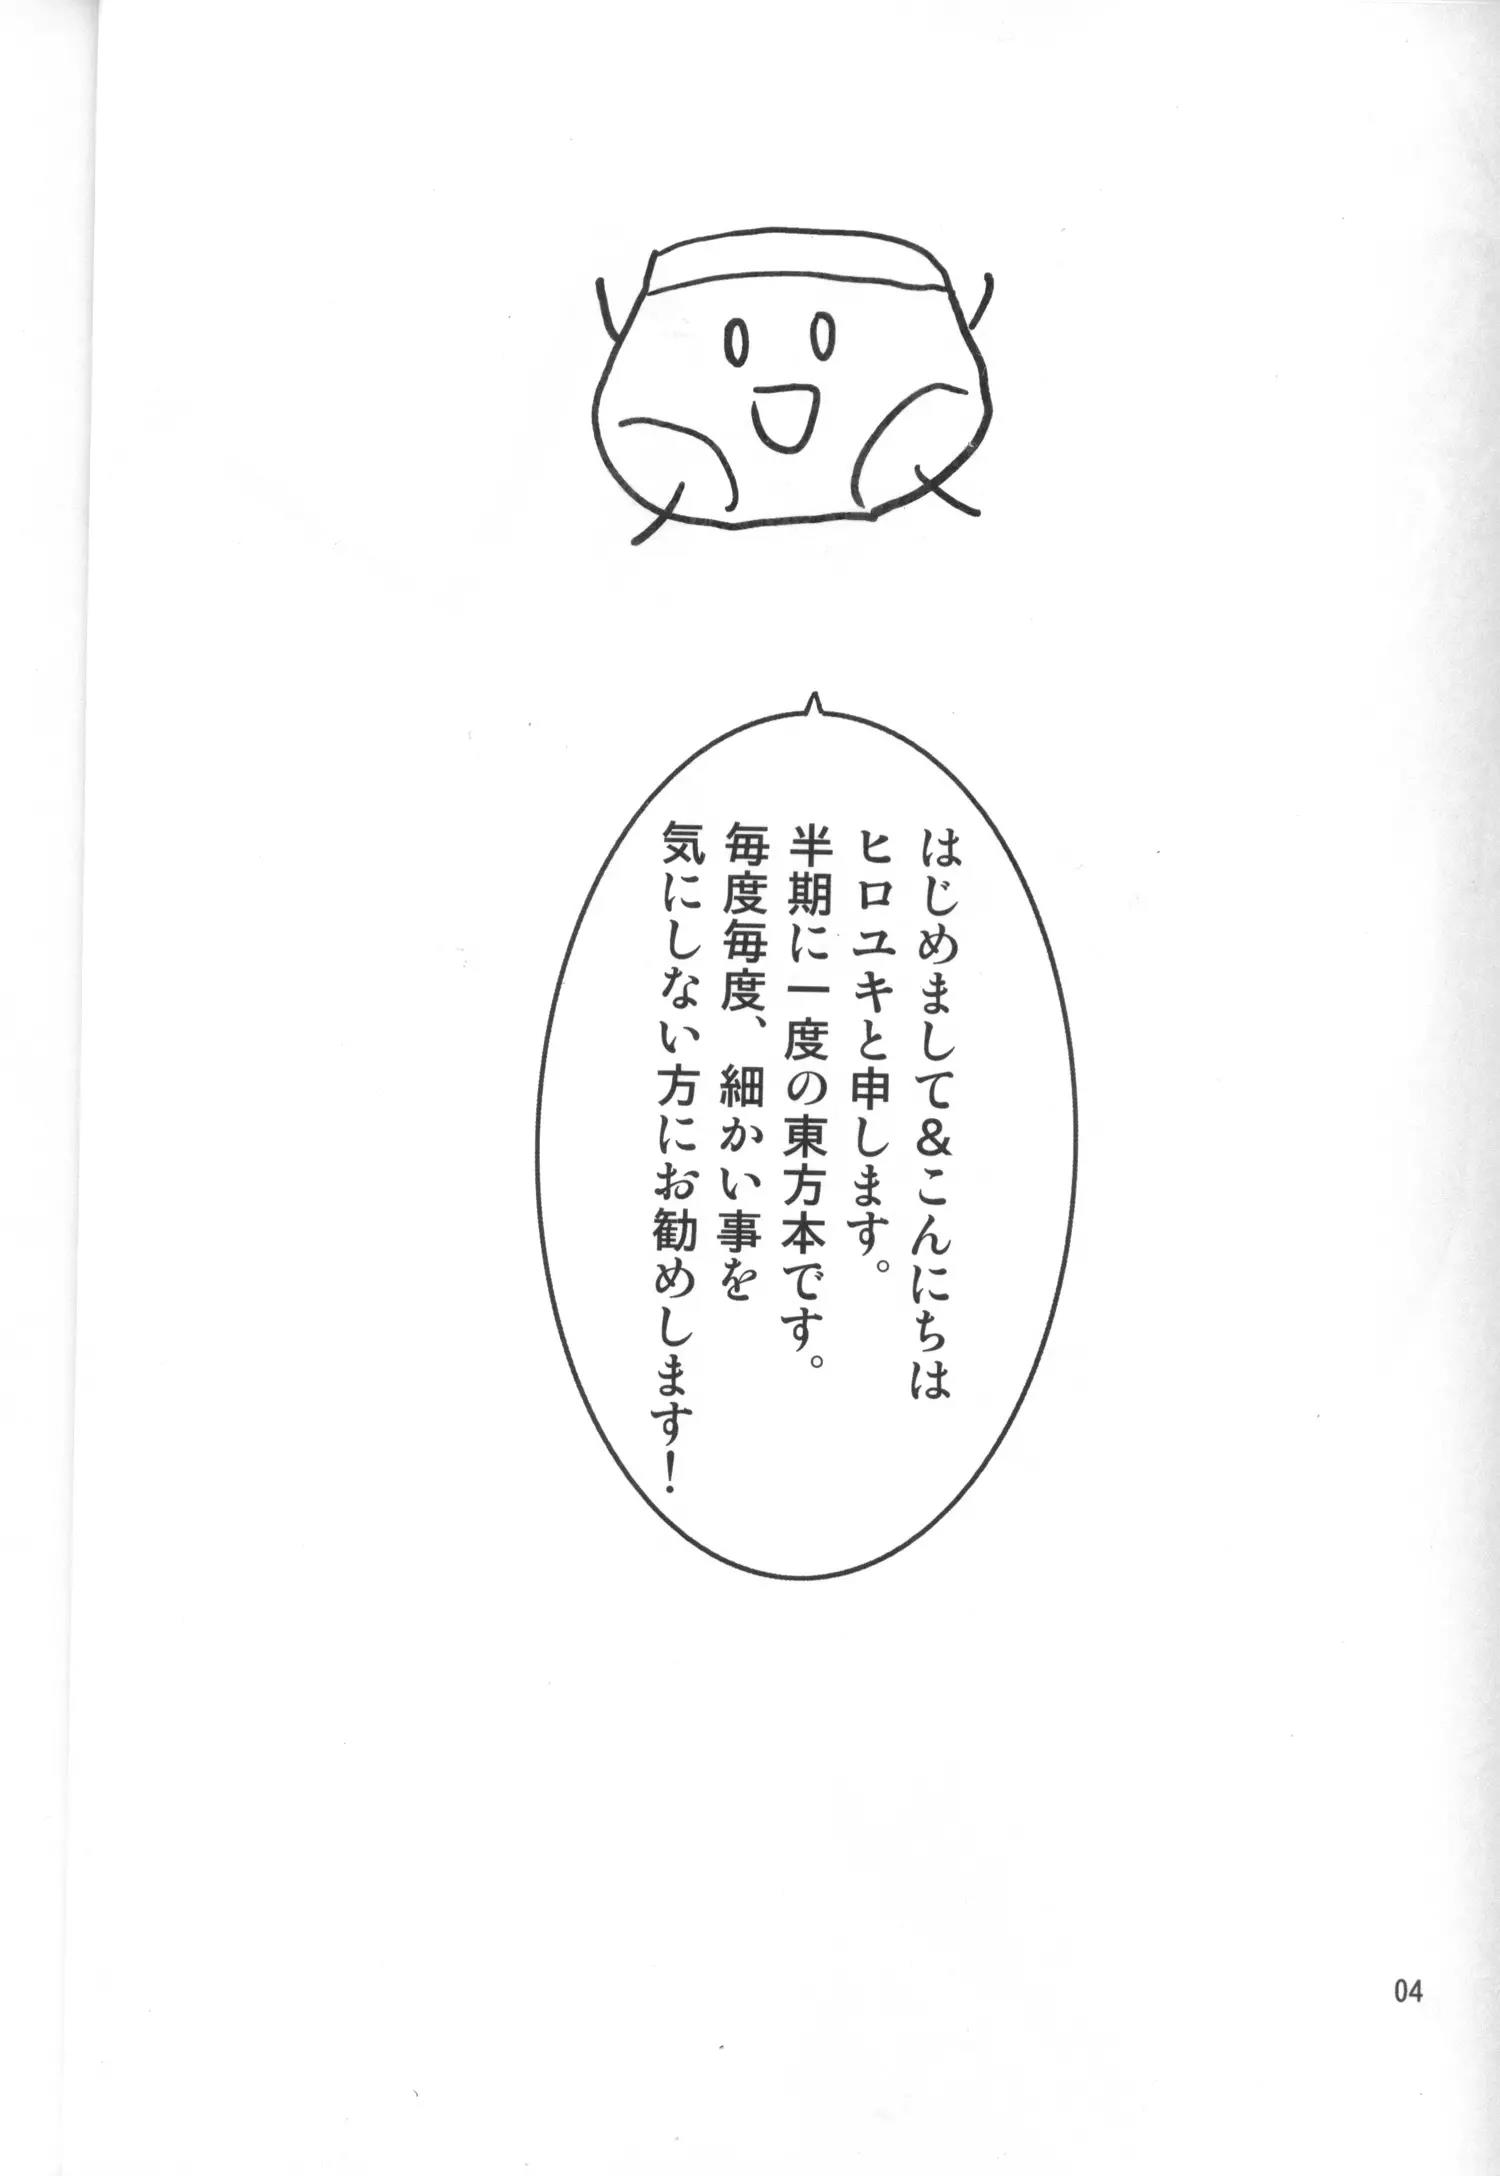 はじめまして&こんにちは
ヒロユキと申します。
半期に一度の東方本です。
毎度毎度、細かい事を
気にしない方にお勧めします！
04